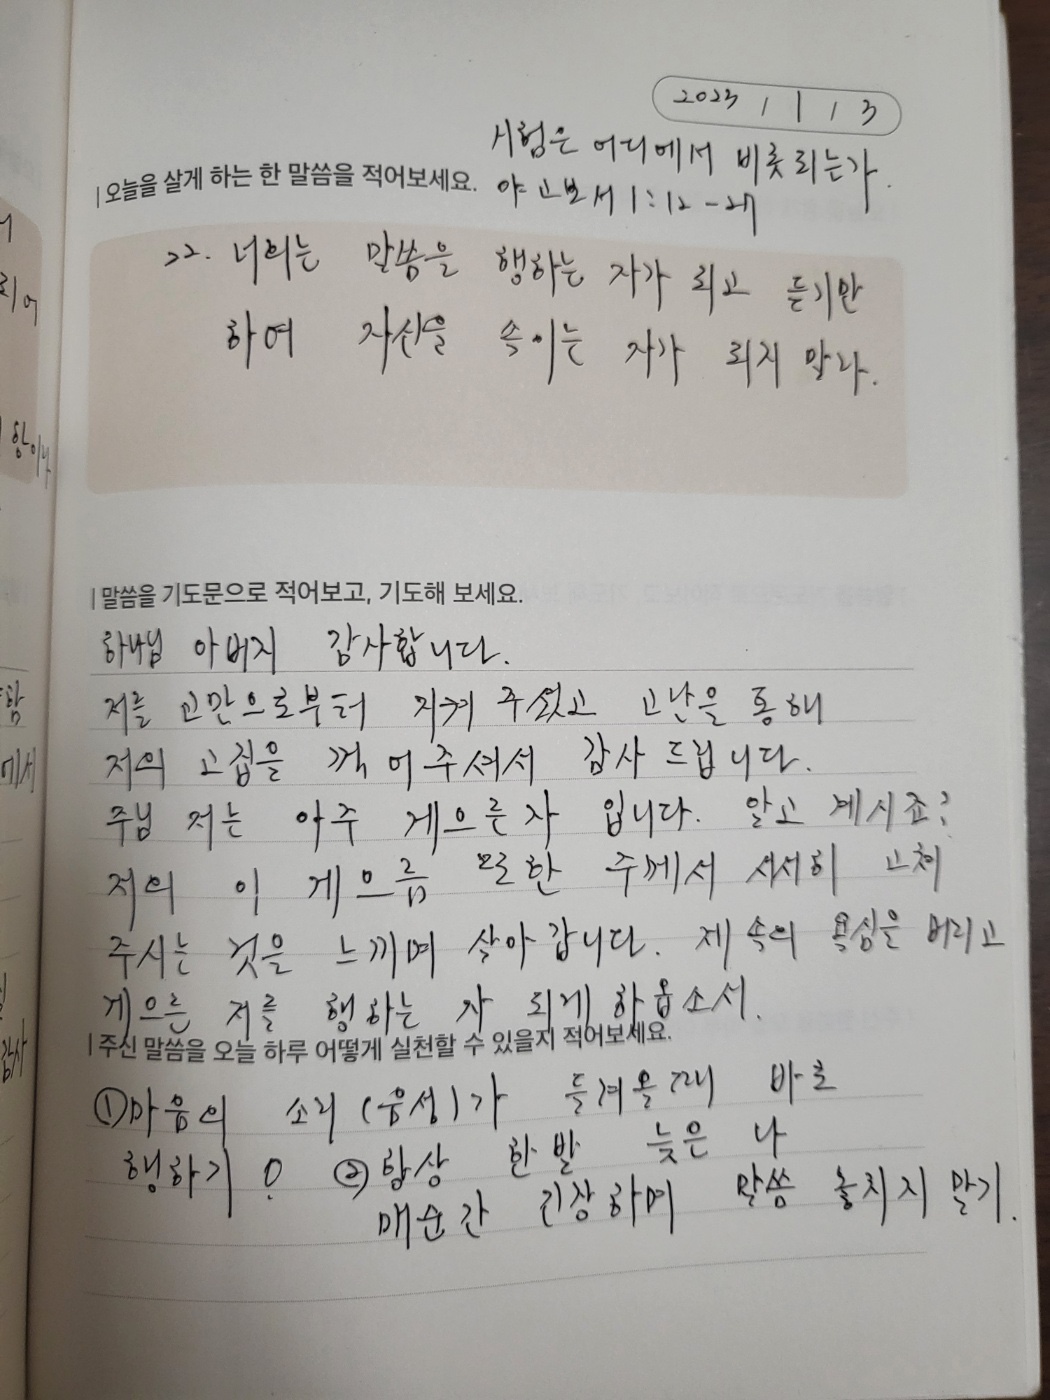 2023 / 1 / 3
시험은 어디에서 비롯되는가.
야고보서 1:12-27
오늘을 살게 하는 한 말씀을 적어보세요.
22. 너희는 말씀을 행하는 자가 되고 듣기만
하여 자신을 속이는 자가 되지 말라.
말씀을 기도문으로 적어보고, 기도해 보세요.
하나님 아버지 감사합니다.
저를 교만으로부터 지켜 주셨고 고난을 통해
저의 고집을 꺽어주셔서 감사드립니다.
주님 저는 아주 게으른 자 입니다. 알고 계시죠?
저의 이 게으름 또한 주께서 서서히 고쳐
주시는 것을 느끼며 살아갑니다. 제 속의 욕심을 버리고
게으른 저를 행하는 자 되게 하옵소서.
주신 말씀을 오늘 하루 어떻게 실천할 수 있을지 적어보세요.
① 마음의 소리 (음성)가 들려올때 바로
행하기! ② 항상 한 발 늦은 나
매순간 긴장하며 말씀 놓치지 말기.